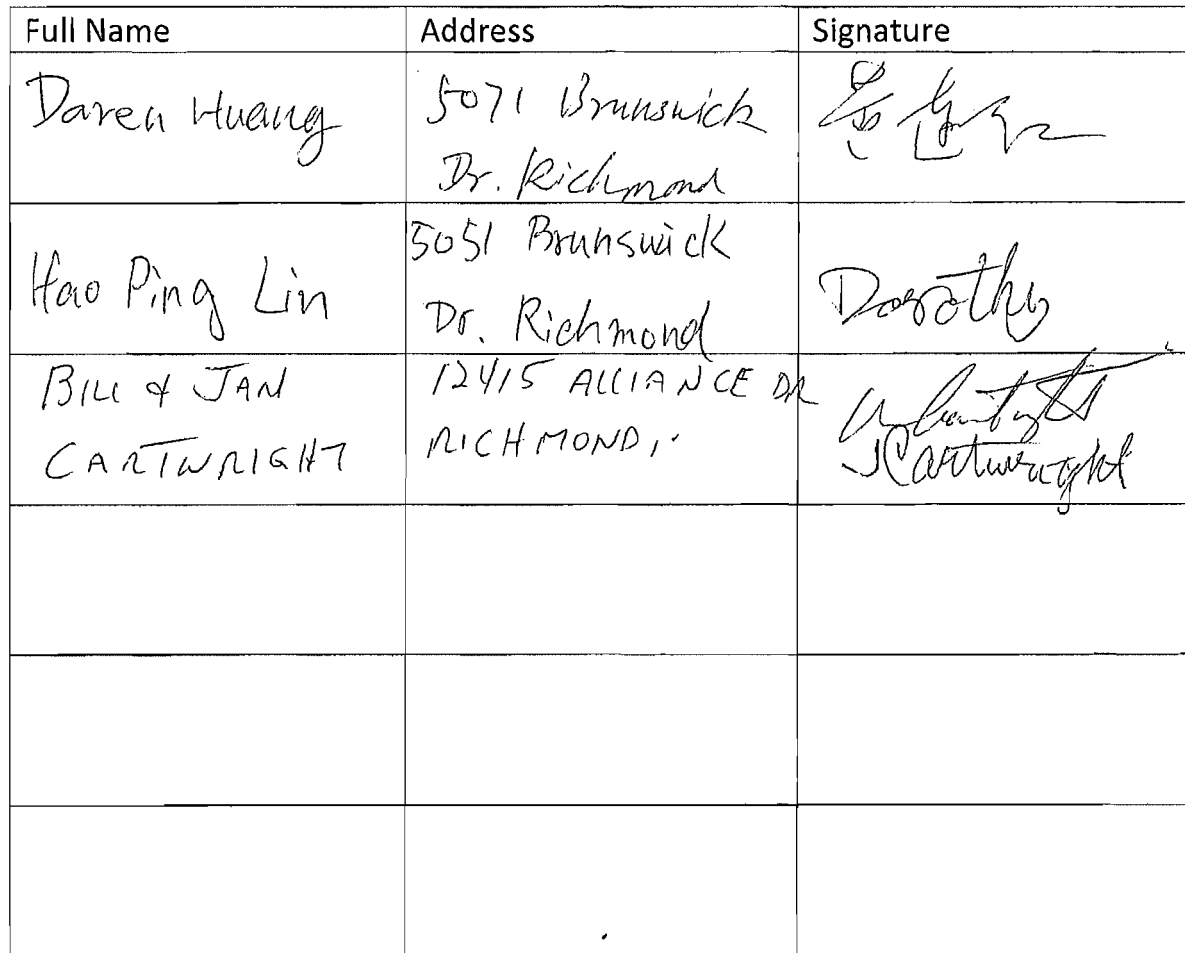 Full Name Address Signature
Daren Huang
5071 Brunswick
Dr. Richmond
Hao Ping Lin
5051 Brunswick
Dr. Richmond
Dorothy
BILL & JAN
CARTWRIGHT
12415 ALLIANCE DR
RICHMOND,
JCartwright